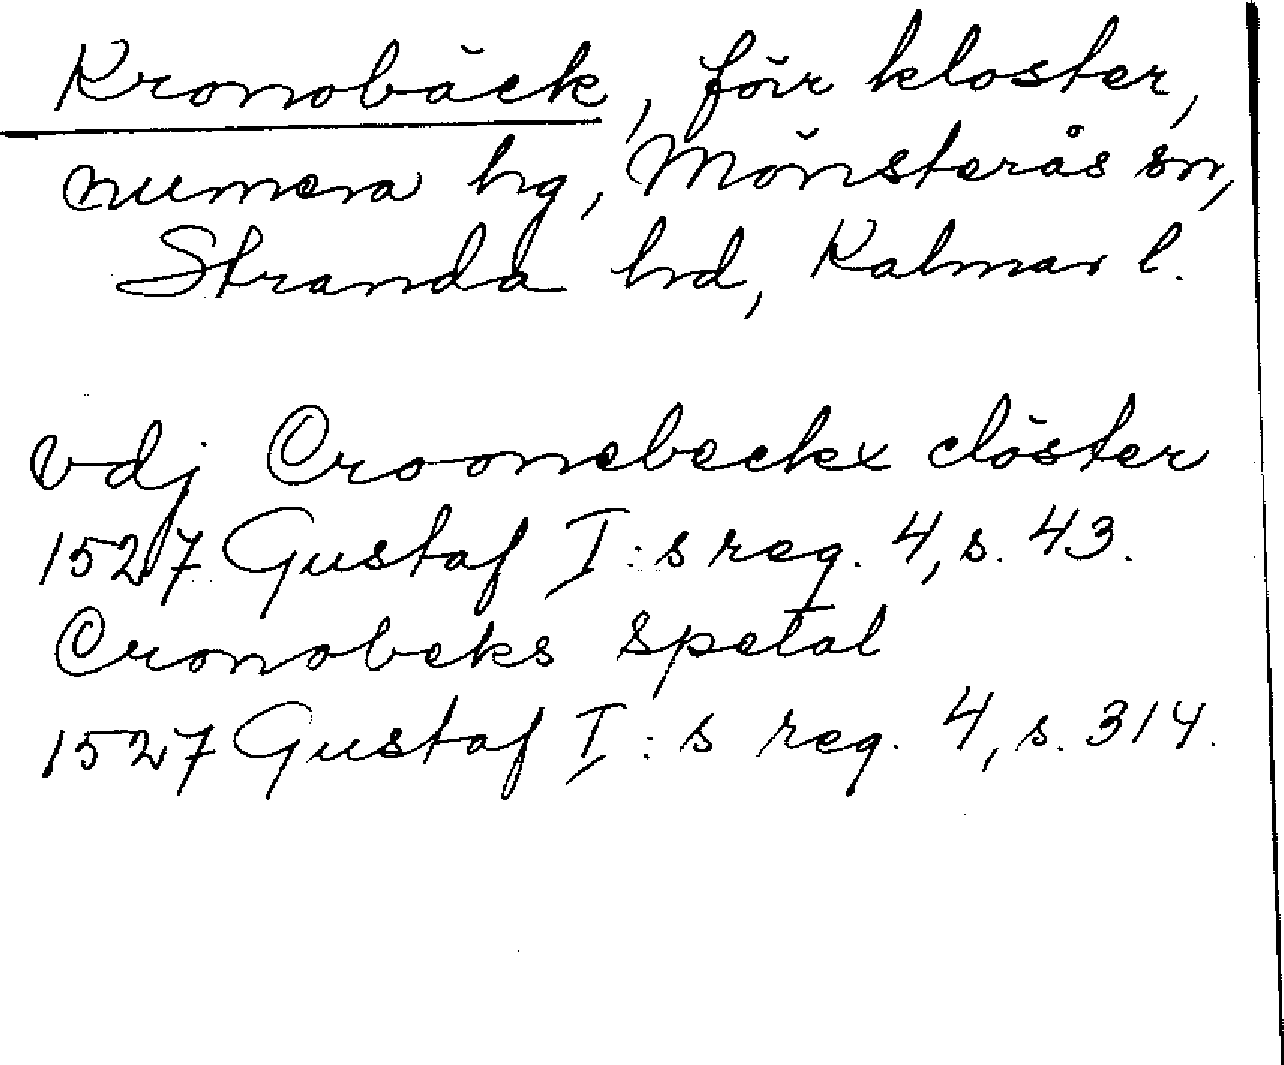 Kronobäck, förr kloster,
numera hg, Mönsterås sn,
Stranda hd, Kalmar l.
vdj Croonebeckx clöster
1527 Gustaf I:s reg. 4, s. 43.
Cronobeks spetal
1527 Gustaf I:s reg. 4, s. 314.